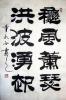 穐風蕭瑟
洪波湧起